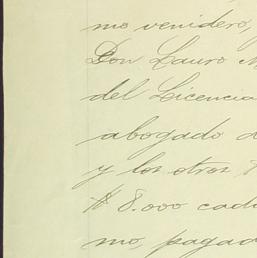 mo venidero,
Don Lauro M
del Licencia
abogado d
y los otros $
$ 8.000 cad
mo, pagad